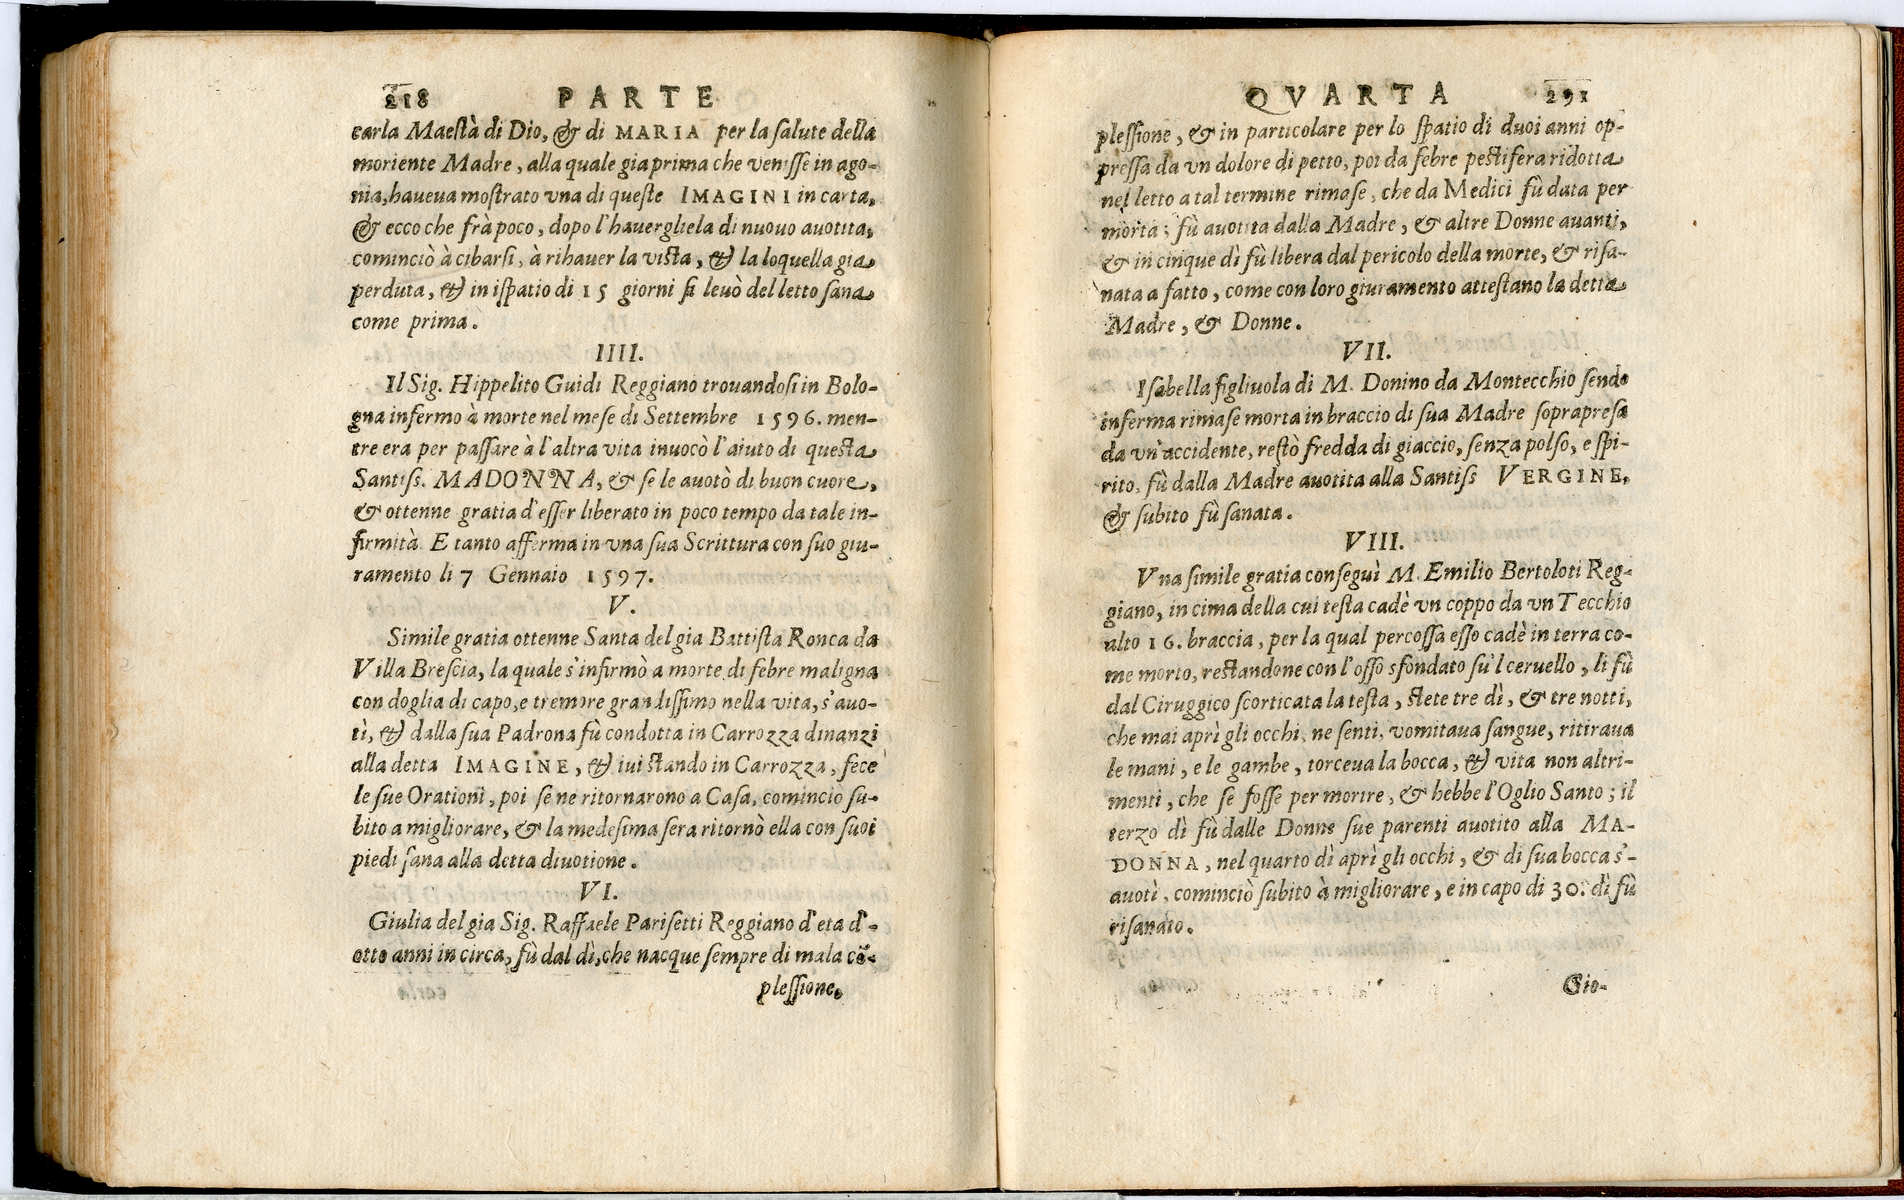 218 PARTE
carla Maestà di Dio, & di MARIA per la salute della
moriente Madre, alla quale gia prima che venisse in ago-
nia, haueua mostrato vna di queste IMAGINI in carta,
& ecco che frà poco, dopo l'hauergliela di nuouo auotita,
cominciò à cibarsi, à rihauer la vista, & la loquella gia
perduta, & in ispatio di 15 giorni si leuò del letto sana
come prima.
IIII.
Il Sig. Hippelito Guidi Reggiano trouandosi in Bolo-
gna infermo à morte nel mese di Settembre 1596. men-
tre era per passare à l'altra vita inuocò l'aiuto di questa
Santiss. MADONNA, & se le auotò di buon cuore,
& ottenne gratia d'esser liberato in poco tempo da tale in-
firmità. E tanto afferma in vna sua Scrittura con suo giu-
ramento li 7 Gennaio 1597.
V.
Simile gratia ottenne Santa del gia Battista Ronca da
Villa Brescia, la quale s'infirmò a morte di febre maligna
con doglia di capo, e tremore grandissimo nella vita, s'auo-
tì, & dalla sua Padrona fù condotta in Carrozza dinanzi
alla detta IMAGINE, & iui stando in Carrozza, fece
le sue Orationi, poi se ne ritornarono a Casa, cominciò su-
bito a migliorare, & la medesima sera ritornò ella con suoi
piedi sana alla detta diuotione.
VI.
Giulia del gia Sig. Raffaele Parisetti Reggiano d'eta d'-
otto anni in circa, fù dal dì, che nacque sempre di mala cõ-
plessione,
QVARTA 291
plessione, & in particolare per lo spatio di duoi anni op-
pressa da vn dolore di petto, poi da febre pestifera ridotta
nel letto a tal termine rimase, che da Medici fù data per
morta; fù auotita dalla Madre, & altre Donne auanti,
& in cinque dì fù libera dal pericolo della morte, & risa-
nata a fatto, come con loro giuramento attestano la detta
Madre, & Donne.
VII.
Isabella figliuola di M. Donino da Montecchio sendo
inferma rimase morta in braccio di sua Madre soprapresa
da vn'accidente, restò fredda di giaccio, senza polso, e spi-
rito, fù dalla Madre auotita alla Santiss VERGINE,
& subito fù sanata.
VIII.
Vna simile gratia conseguì M. Emilio Bertoloti Reg-
giano, in cima della cui testa cadè vn coppo da vn Tecchio
alto 16. braccia, per la qual percossa esso cadè in terra co-
me morto, restandone con l'osso sfondato sù'l ceruello, li fù
dal Ciruggico scorticata la testa, stete tre dì, & tre notti,
che mai aprì gli occhi, ne sentì, vomitaua sangue, ritiraua
le mani, e le gambe, torceua la bocca, & vita non altri-
menti, che se fosse per morire, & hebbe l'Oglio Santo; il
terzo dì fù dalle Donne sue parenti auotito alla MA-
DONNA, nel quarto dì aprì gli occhi, & di sua bocca s'-
auotì, cominciò subito à migliorare, e in capo di 30. dì fù
risanato.
Gio-